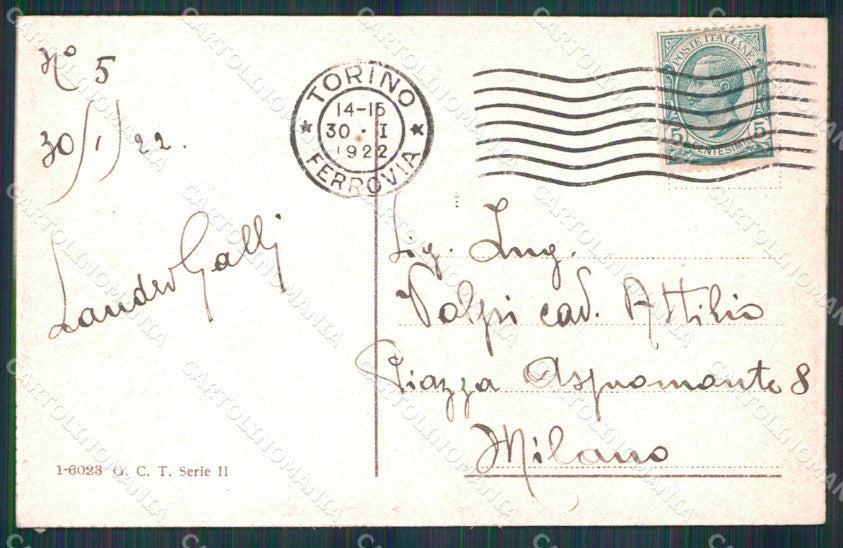 Nº 5
30/1/22.
Sandro Galli
1-6023 G. C. T. Serie II
TORINO
14-15
30 · I
1922
FERROVIA
POSTE ITALIANE
5 5
CENTESIMI
Sig. Ing.
Volpi cav. Attilio
Piazza Aspromonte 8
Milano
CARTOLINOMANIA